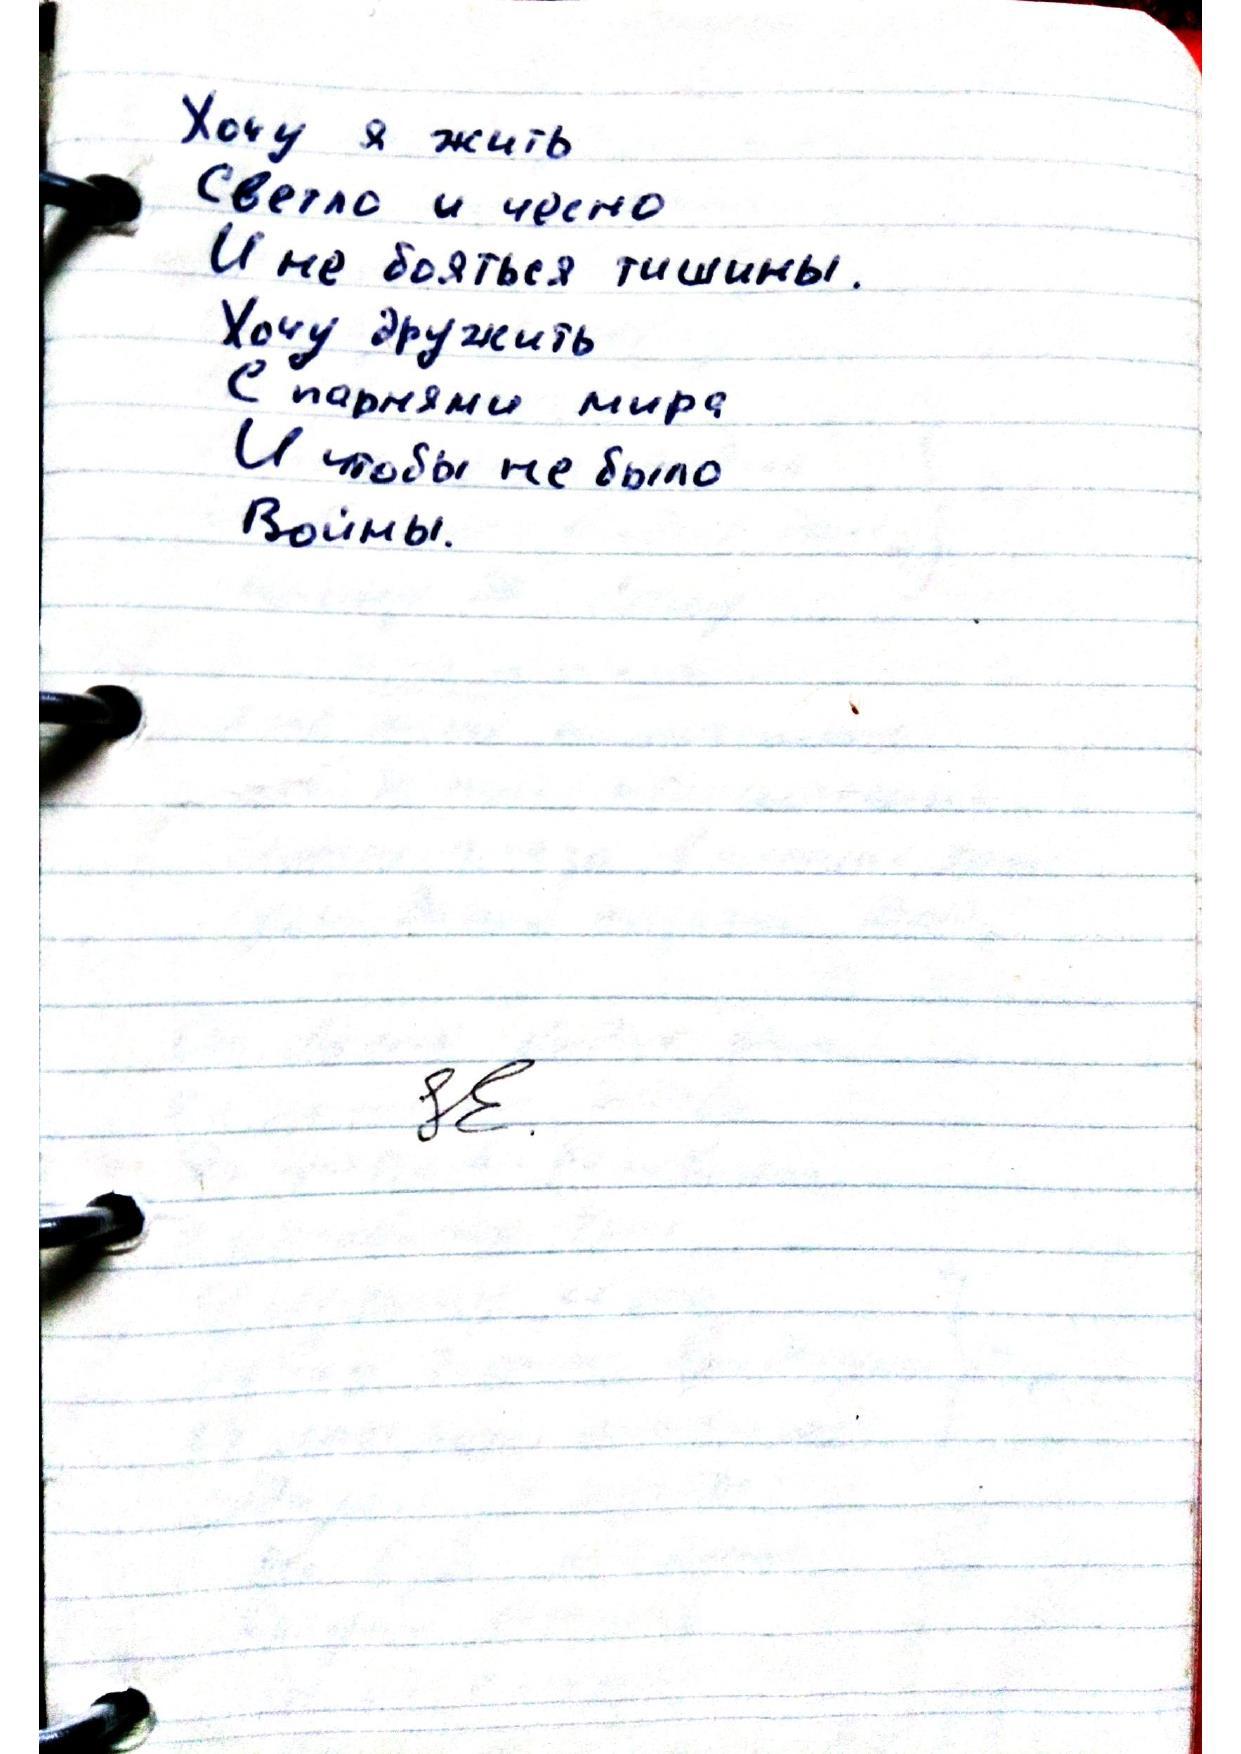 Хочу я жить
Светло и чесно
И не бояться тишины.
Хочу дружить
С парнями мира
И чтобы не было
Войны.